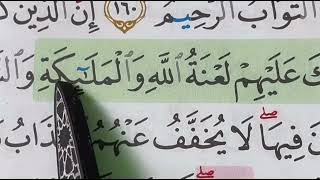 التَّوَّابُ الرَّحِيمُ ١٦٠ إِنَّ الَّذِينَ
عَلَيْهِمْ لَعْنَةُ ٱللَّهِ وَٱلْمَلَٰٓئِكَةِ
فِيهَا ۖ لَا يُخَفَّفُ عَنْهُمُ